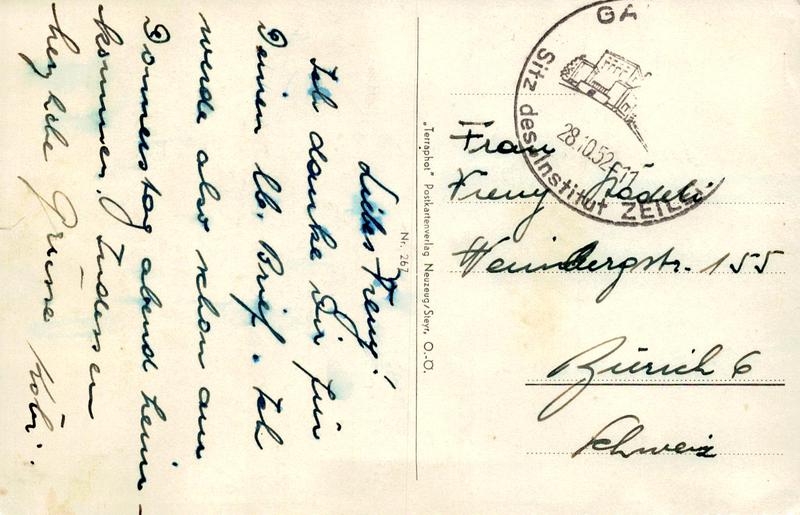 Liebes Freny!
Ich danke Dir für
Deinen lb. Brief. Ich
werde also schon am
Donnerstag abend heim-
kommen. Indessen
herzliche Grüsse Köbi.
"Terraphot" Postkartenverlag Neuzeug/Steyr, O.-Ö.
Nr. 267
GA
Sitz des Institut ZEIL
28.10.52-17
Frau
Freny Rödeli
Weinbergstr. 155
Zürich 6
Schweiz